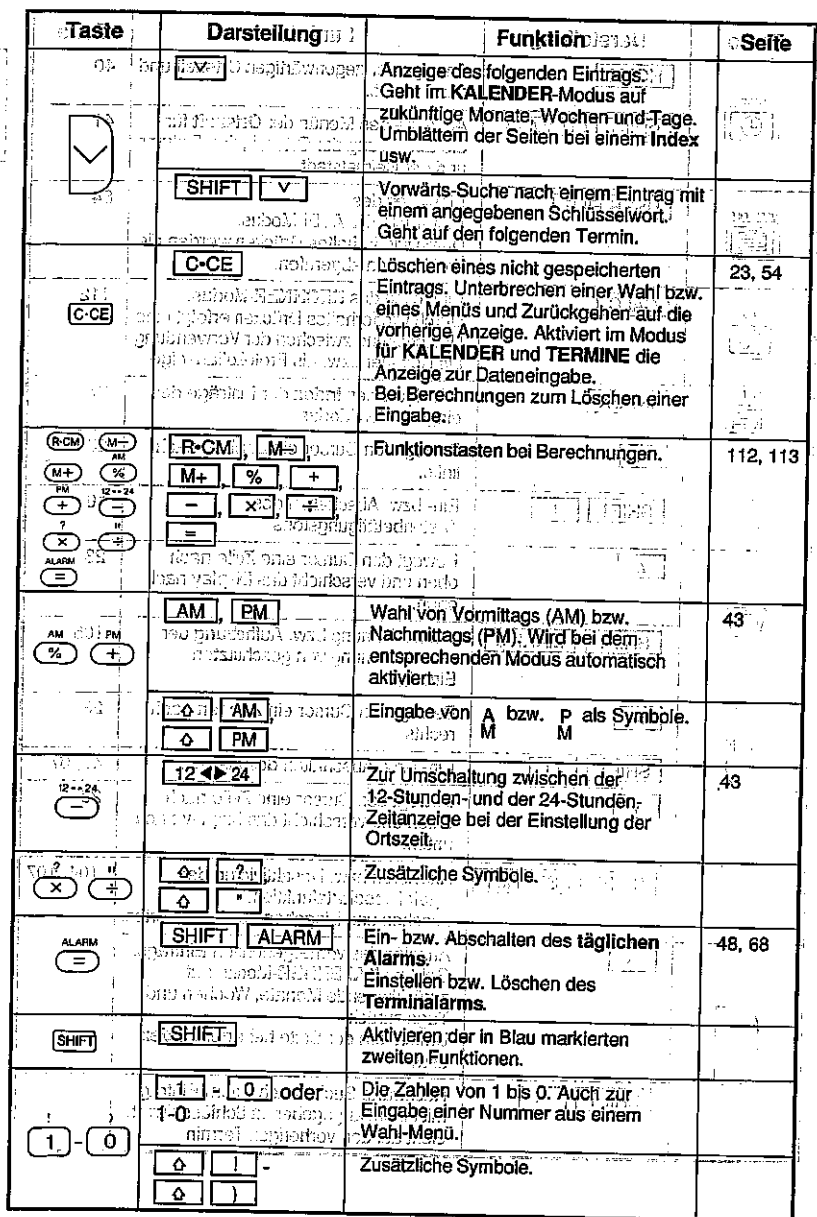 Taste Darstellung Funktion Seite
∨ Anzeige des folgenden Eintrags.
Geht im KALENDER-Modus auf
zukünftige Monate, Wochen und Tage.
Umblättern der Seiten bei einem Index
usw.
SHIFT ∨ Vorwärts-Suche nach einem Eintrag mit
einem angegebenen Schlüsselwort.
Geht auf den folgenden Termin.
C·CE C·CE Löschen eines nicht gespeicherten 23, 54
Eintrags. Unterbrechen einer Wahl bzw.
eines Menüs und Zurückgehen auf die
vorherige Anzeige. Aktiviert im Modus
für KALENDER und TERMINE die
Anzeige zur Dateneingabe.
Bei Berechnungen zum Löschen einer
Eingabe.
R·CM M− R·CM, M−, Funktionstasten bei Berechnungen. 112, 113
AM
M+ % M+, %, +,
PM 12↔24
+ − −, ×, ÷,
? "
× ÷ =
ALARM
=
AM PM
% + AM, PM Wahl von Vormittags (AM) bzw. 43
Nachmittags (PM). Wird bei dem
entsprechenden Modus automatisch
aktiviert.
⇧ AM, Eingabe von AM bzw. PM als Symbole.
⇧ PM
12↔24
− 12◀▶24 Zur Umschaltung zwischen der 43
12-Stunden- und der 24-Stunden-
Zeitanzeige bei der Einstellung der
Ortszeit.
? "
× ÷ ⇧ ?, Zusätzliche Symbole.
⇧ "
ALARM
= SHIFT ALARM Ein- bzw. Abschalten des täglichen 48, 68
Alarms.
Einstellen bzw. Löschen des
Terminalarms.
SHIFT SHIFT Aktivieren der in Blau markierten
zweiten Funktionen.
! )
1 - 0 1 - 0 oder Die Zahlen von 1 bis 0. Auch zur
1-0 Eingabe einer Nummer aus einem
Wahl-Menü.
⇧ ! - Zusätzliche Symbole.
⇧ )